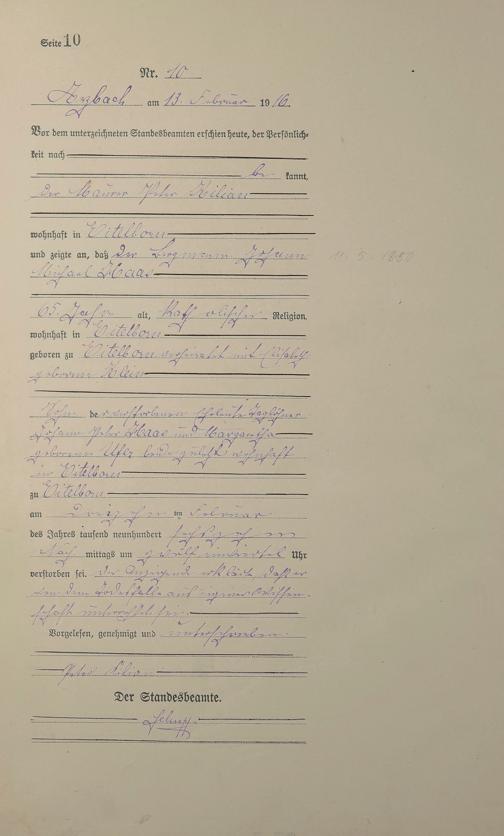 Seite 10
Nr. 10
Arzbach am 13. Februar 1916.
Vor dem unterzeichneten Standesbeamten erschien heute, der Persönlich-
keit nach
be kannt,
der Maurer Peter Kilian
wohnhaft in Eitelborn
und zeigte an, daß der Bergmann Johann
Michael Haas
65 Jahre alt, kath olischer Religion,
wohnhaft in Eitelborn
geboren zu Eitelborn verheiratet mit Elisabeth
geborenen Klein
Sohn der verstorbenen Eheleute Taglöhner
Johann Peter Haas und Margaretha
geborenen beide zuletzt wohnhaft
in Eitelborn
zu Eitelborn
am dreizehn ten Februar
des Jahres tausend neunhundert sechszehn
Nach mittags um zwölf einviertel Uhr
verstorben sei. Der Anzeigende erklärte, daß er
von dem Todesfalle aus eigener Wissen-
schaft unterrichtet sei.
Vorgelesen, genehmigt und unterschrieben
Peter Kilian
Der Standesbeamte.